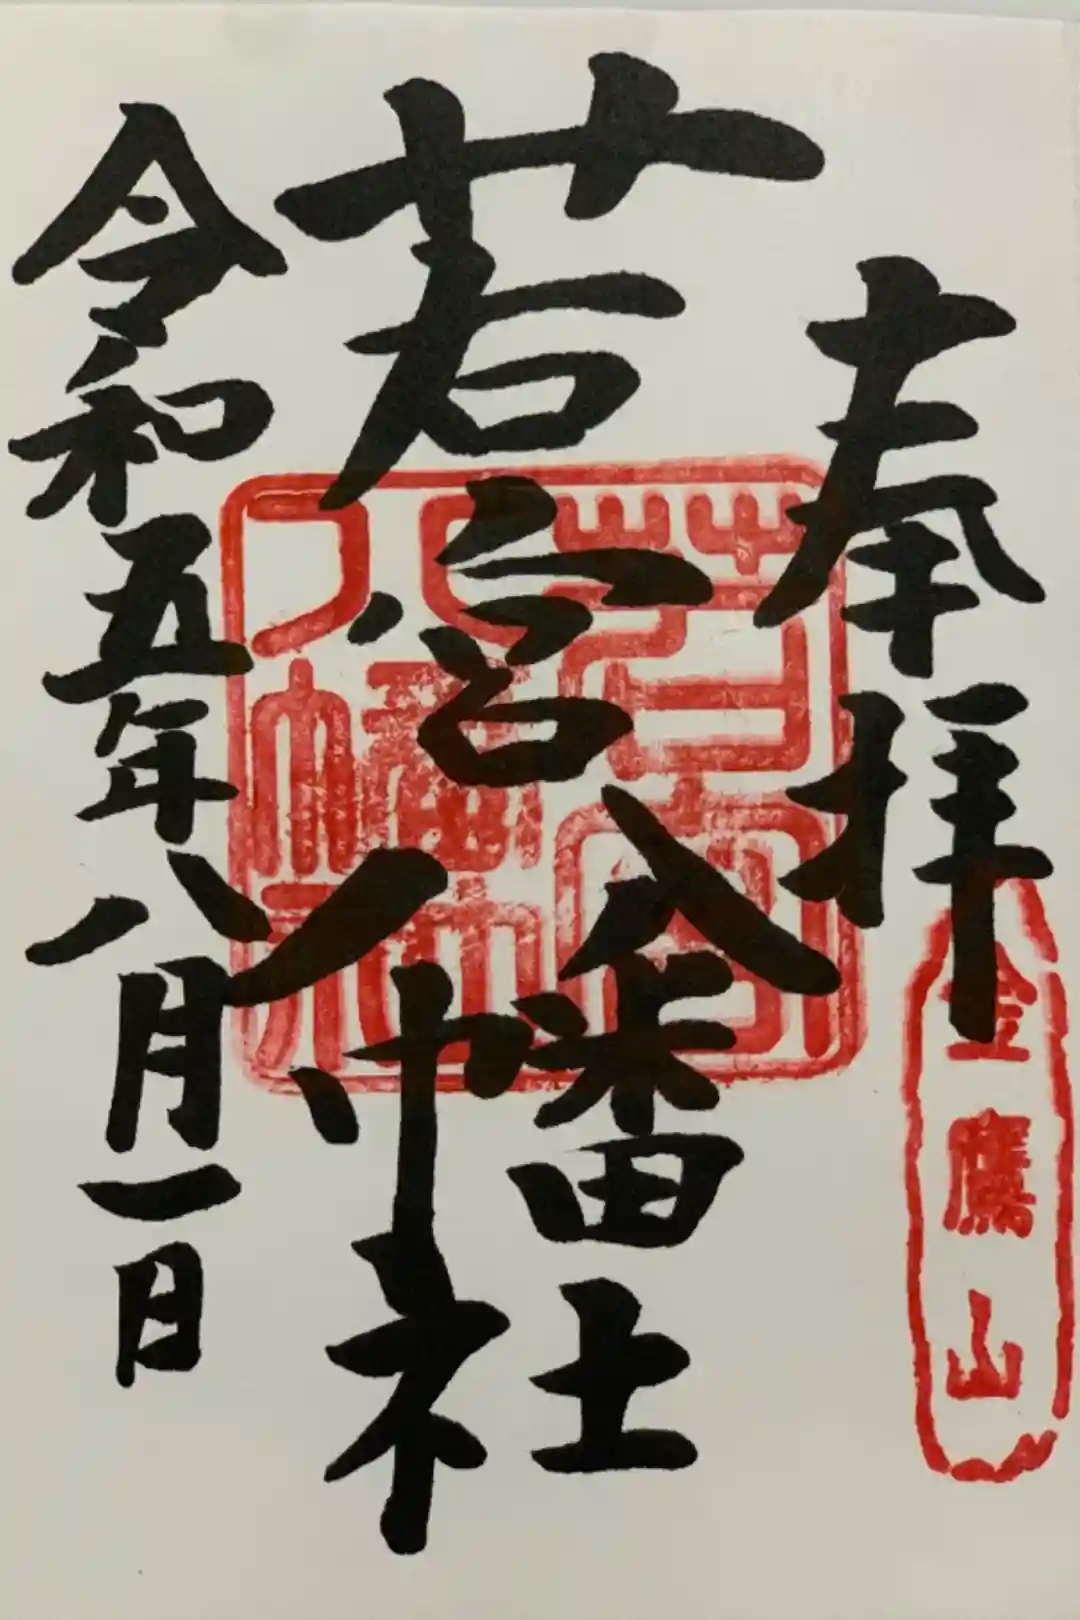 奉拝
金鷹山
若宮八幡社
若宮
八幡社
令和五年八月一日